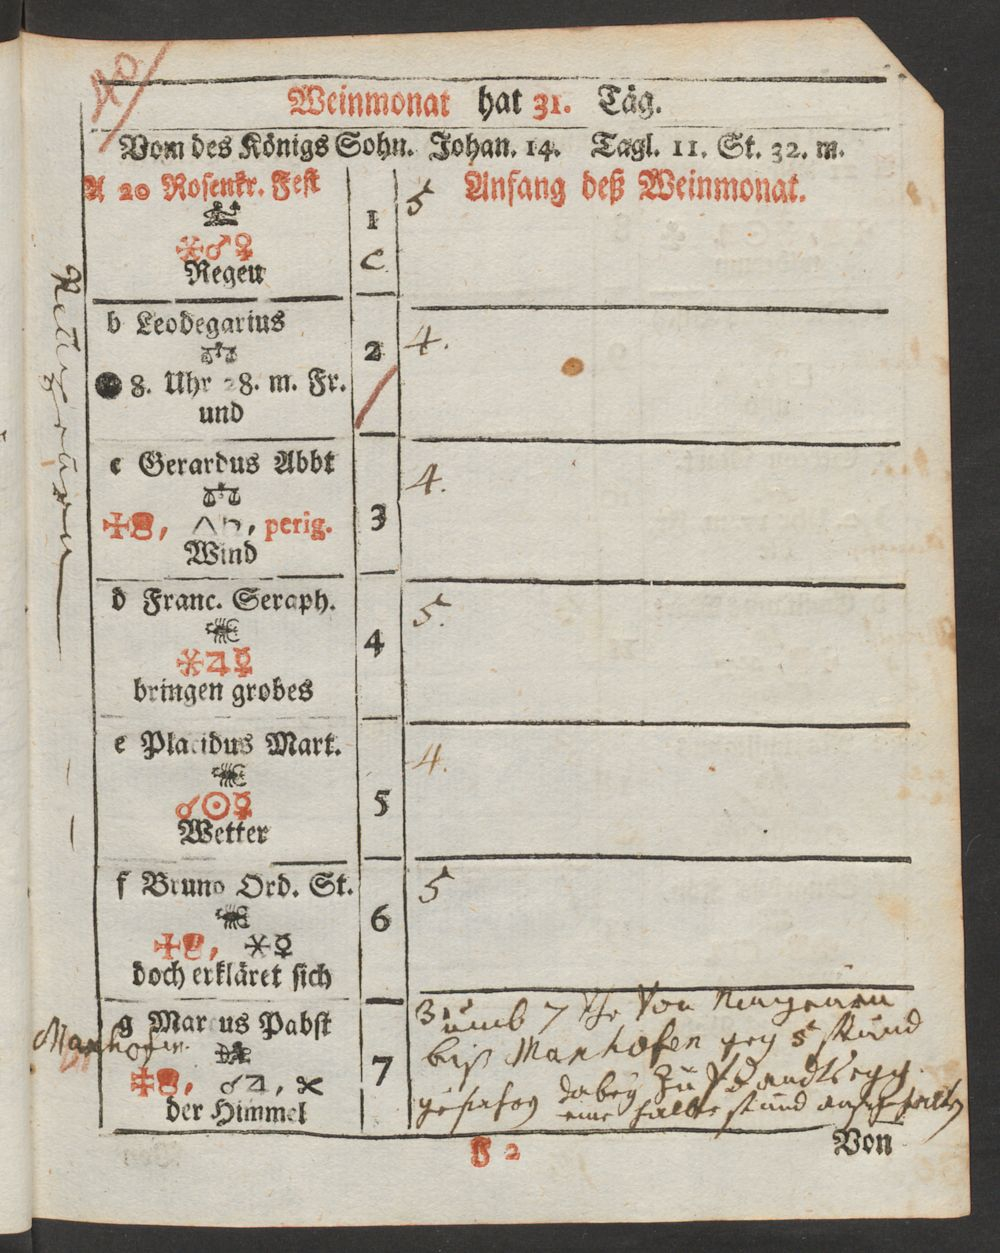 Weinmonat hat 31. Täg.
Vom des Königs Sohn. Johan. 14. Tagl. 11. St. 32. m.
A 20 Rosenkr. Fest
1
5 Anfang deß Weinmonat.
⚹♂♀
C
Regen
b Leodegarius
2
4.
8. Uhr 28. m. Fr.
und
c Gerardus Abbt
3
4.
perig.
Wind
d Franc. Seraph.
4
5.
⚹♃☿
bringen grobes
e Placidus Mart.
5
4.
☌☉☿
Wetter
f Bruno Ord. St.
6
5
⚹☿
doch erkläret sich
g Marcus Pabst
7
3 umb 7 Uhr Von
biß Manhofen 5 stund
dabey Zu
eine halbe stund
☌♃,
der Himmel
Manhofen
F 2
Von